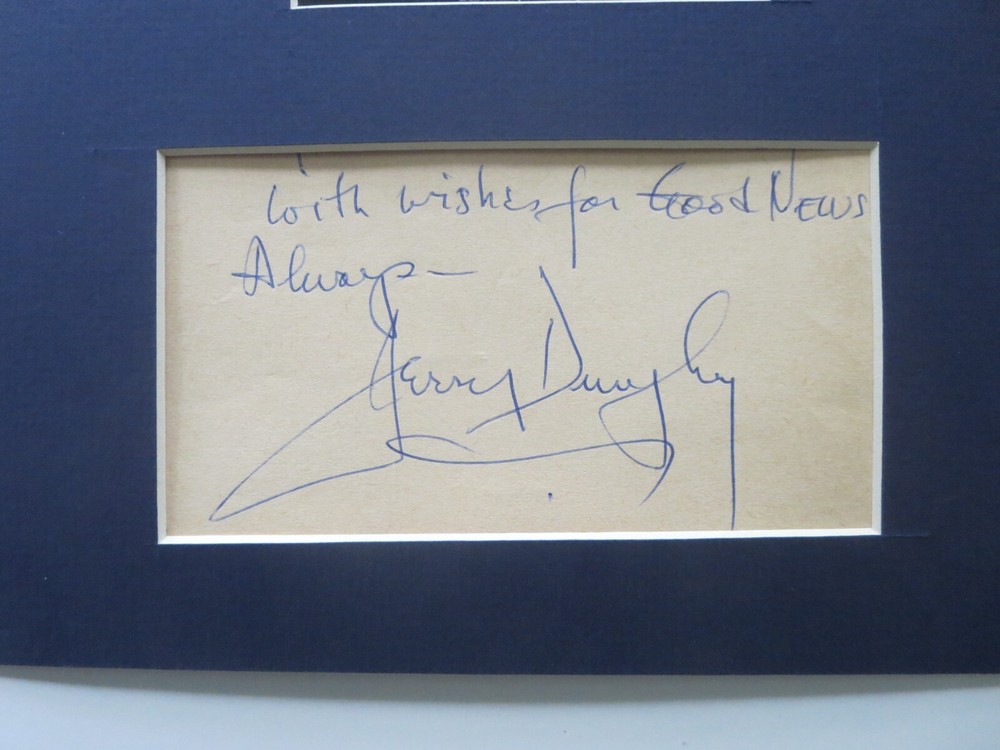 With wishes for Good News
Always—
Jerry Dunphy